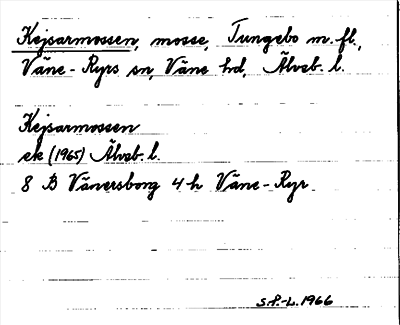 Kejsarmossen, mosse, Tungebo m.fl.,
Väne-Ryrs sn, Väne hd, Älvsb. l.
Kejsarmossen
ek (1965) Älvsb. l.
8 B Vänersborg 4 h Väne-Ryr
S.P.-L. 1966